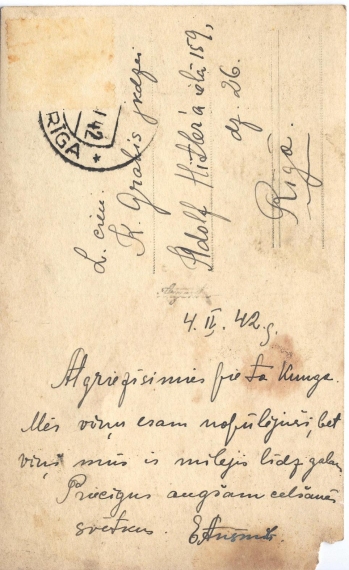 RĪGA
1 42
L. cien.
K. Gralis
Adolf Hitlera ielā 159,
dz. 26.
Rīgā.
4. II. 42.g.
Atgriezīsimies pie tā Kunga.
Mēs viņu esam nopūlējuši, bet
viņš mūs is mīlejis līdz galam
Priecīgus augšam celšanās
svētkus.